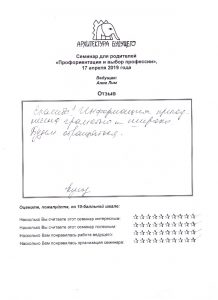 АРХИТЕКТУРА БУДУЩЕГО
Семинар для родителей
«Профориентация и выбор профессии»,
17 апреля 2019 года
Ведущая:
Анна Лим
Отзыв
Спасибо! Информация препод-
несена грамотно и широко
Будем обращаться.
Оцените, пожалуйста, по 10-балльной шкале:
Насколько Вы считаете этот семинар интересным:
Насколько Вы считаете этот семинар полезным:
Насколько Вам понравилась работа ведущего:
Насколько Вам понравилась организация семинара: